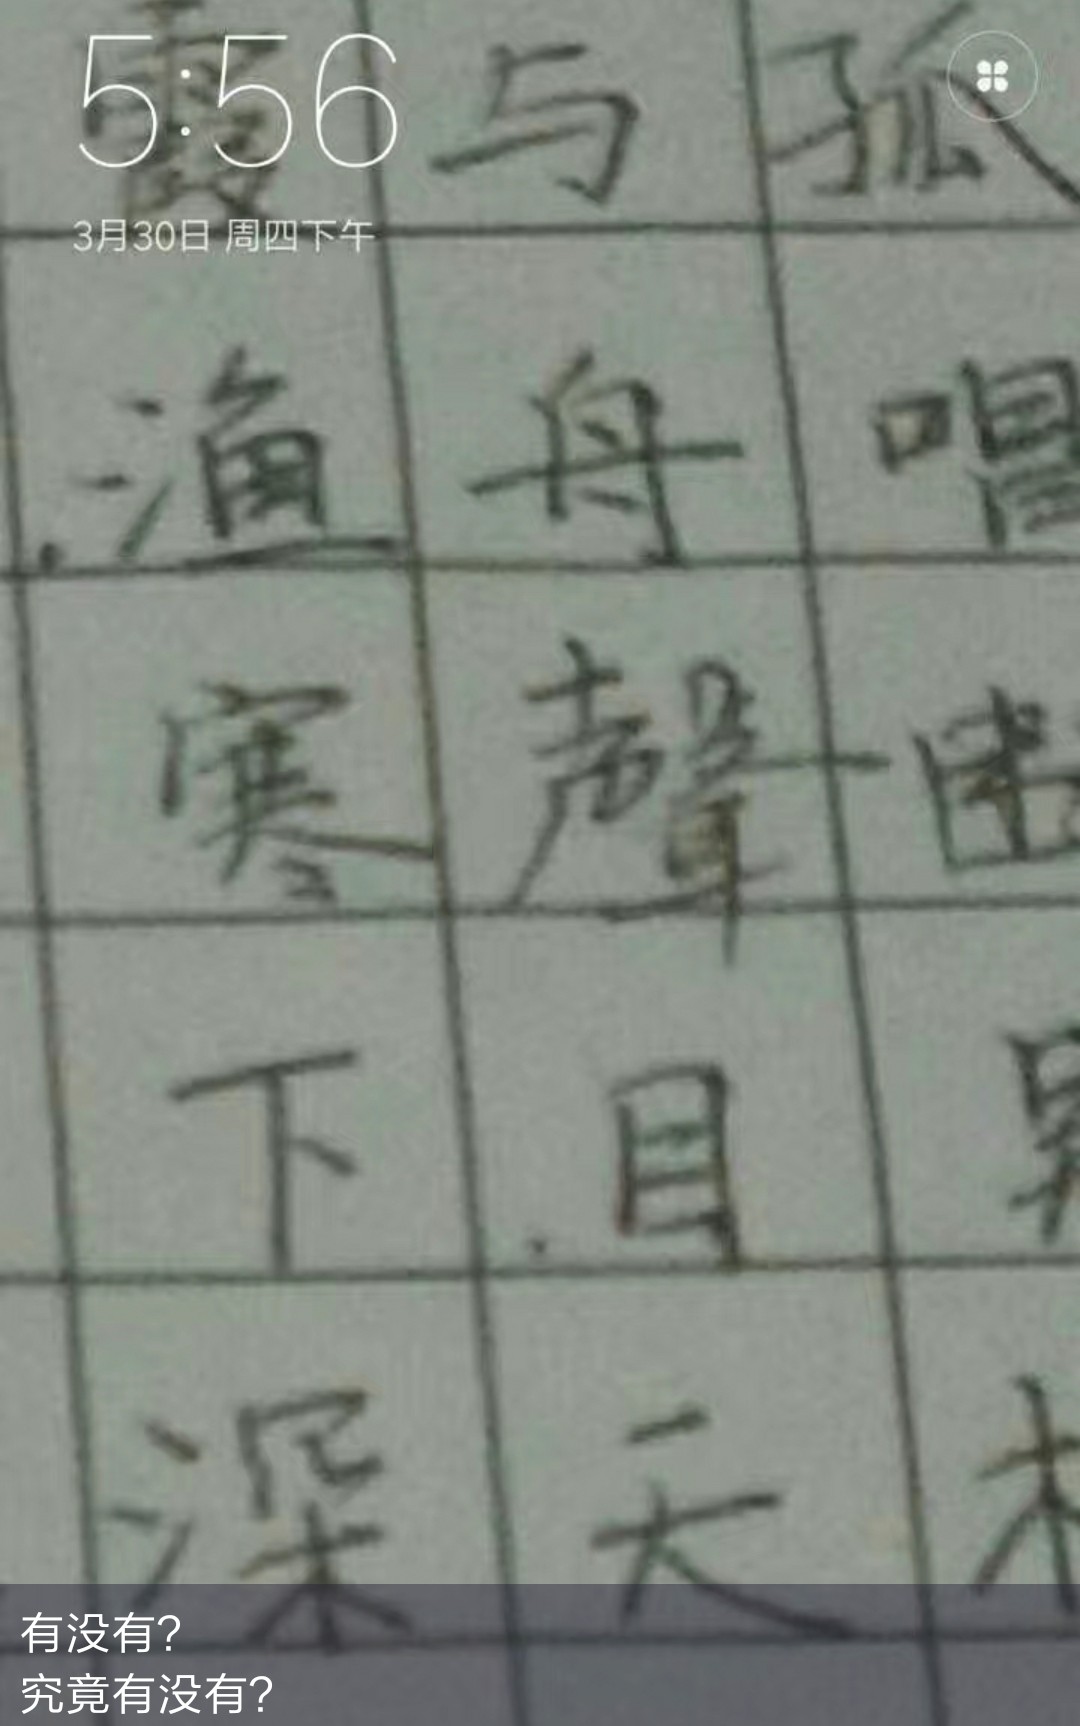 5:56
3月30日 周四下午
霞与孤
渔舟唱
寒聲断
下目穷
深天杜
有没有?
究竟有没有?